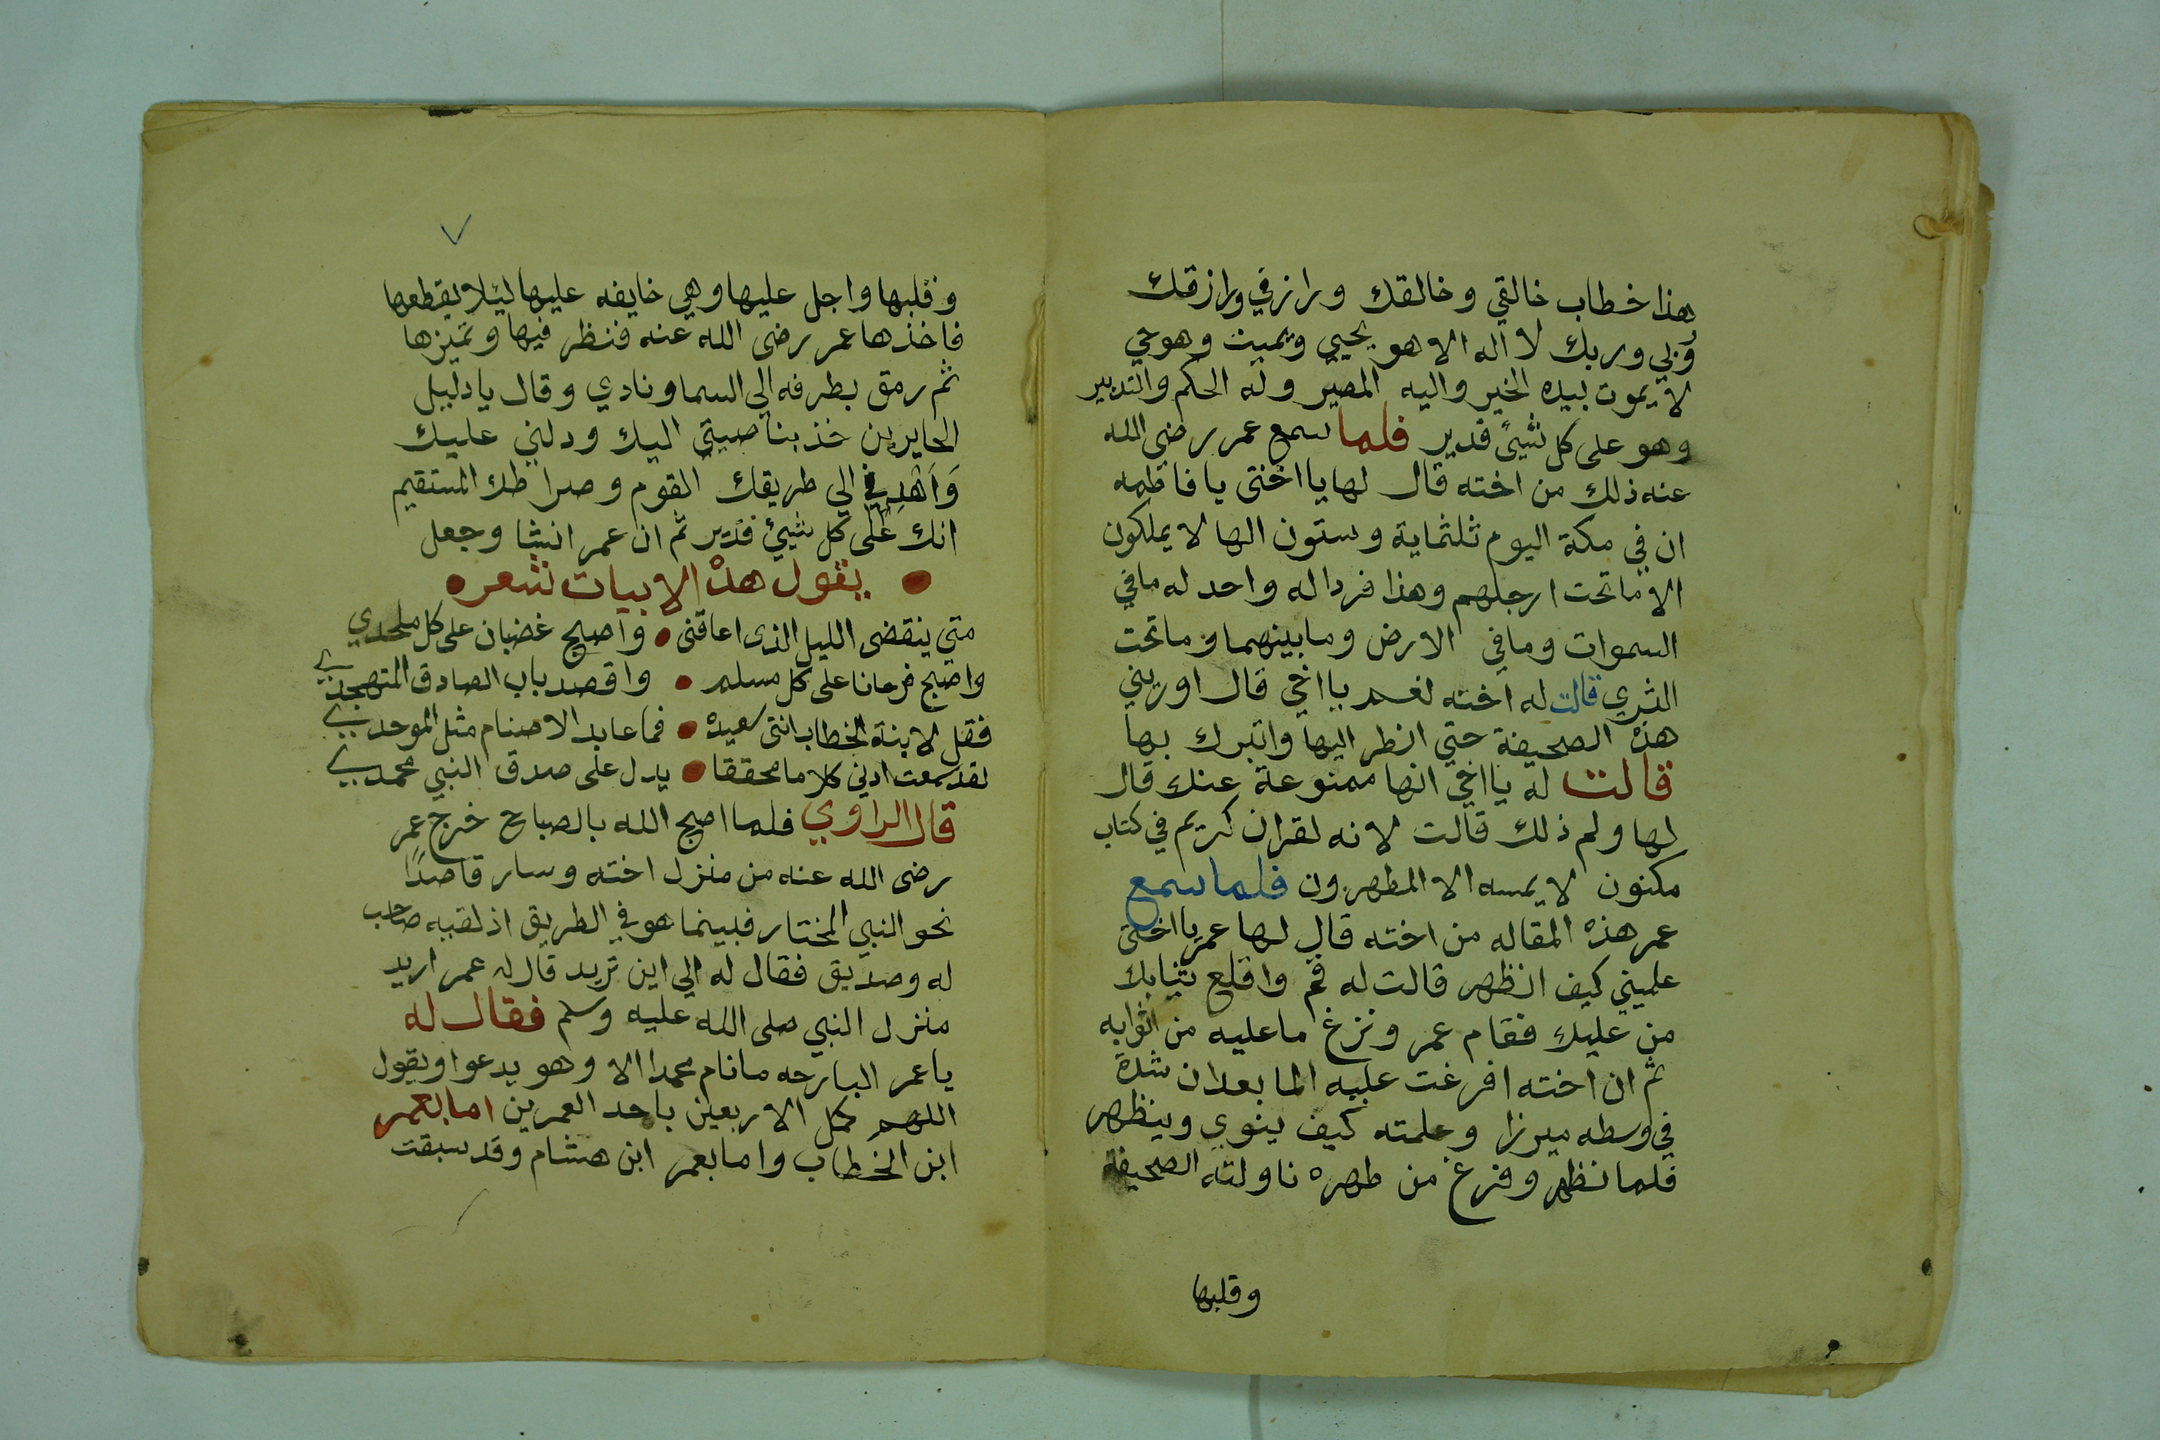 هذا خطاب خالقي وخالقك ورازقي ورازقك
وربي وربك لا اله الا هو يحيي ويميت وهو حي
لا يموت بيده الخير واليه المصير وله الحكم والتدبير
وهو على كل شيئ قدير فلما سمع عمر رضي الله
عنه ذلك من اخته قال لها يا اختى يا فاطمه
ان في مكة اليوم ثلثماية وستون الها لا يملكون
الا ما تحت ارجلهم وهذا فرد اله واحد له ما في
السموات وما في الارض وما بينهما وما تحت
الثري قالت له اخته نعم يا اخي قال اوريني
هذه الصحيفة حتي انظر اليها واتبرك بها
قالت له يا اخي انها ممنوعة عنك قال
لها ولم ذلك قالت لانه لقران كريم في كتاب
مكنون لا يمسه الا المطهرون فلما سمع
عمر هذه المقاله من اخته قال لها عمر يا اختى
علميني كيف انظهر قالت له قم واقلع ثيابك
من عليك فقام عمر ونزع ما عليه من اثوابه
ثم ان اخته افرغت عليه الما بعد ان شدة
في وسطه ميزرا وعلمته كيف ينوي وينظهر
فلما نظهر وفرغ من طهره ناولته الصحيفة
وقلبها
٧
وقلبها واجل عليها وهي خايفه عليها ليلا يقطعها
فاخذها عمر رضى الله عنه فنظر فيها وتميزها
ثم رمق بطرفه الي السما ونادي وقال يا دليل
الحايرين خذ بناصيتي اليك ودلني عليك
وَاهْدِني الي طريقك القوم وصراطك المستقيم
انك على كل شيئ قدير ثم ان عمر انشا وجعل
يقول هذه الابيات شعره
متي ينقضى الليل الذى اعاقنى • واصبح غضبان على كل ملحدي
واصبح فرحانا على كل مسلم • واقصد باب الصادق المتهجدي
فقل لابنة الخطاب انتى سعيده • فما عابد الاصنام مثل الموحدي
لقد سمعت ادني كلاما محققا • يدل على صدق النبي محمدي
قال الراوي فلما اصبح الله بالصباح خرج عمر
رضى الله عنه من منزل اخته وسار قاصدًا
نحو النبي المختار فبينما هو في الطريق اذ لقيه صاحب
له وصديق فقال له الي اين تريد قال له عمر اريد
منزل النبي صلى الله عليه وسلم فقال له
يا عمر البارحه ما نام محمدا الا وهو يدعوا ويقول
اللهم كمل الاربعين باحد العمرين اما بعمر
ابن الخطاب واما بعمر ابن هشام وقد سبقت